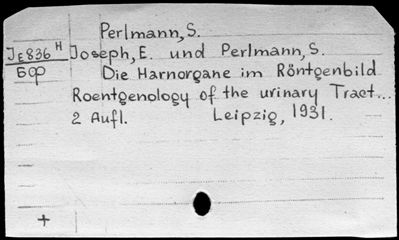 Perlmann, S.
JE836 H Joseph, E. und Perlmann, S.
БОР Die Harnorgane im Röntgenbild
Roentgenology of the urinary Tract...
2 Aufl. Leipzig, 1931.
+